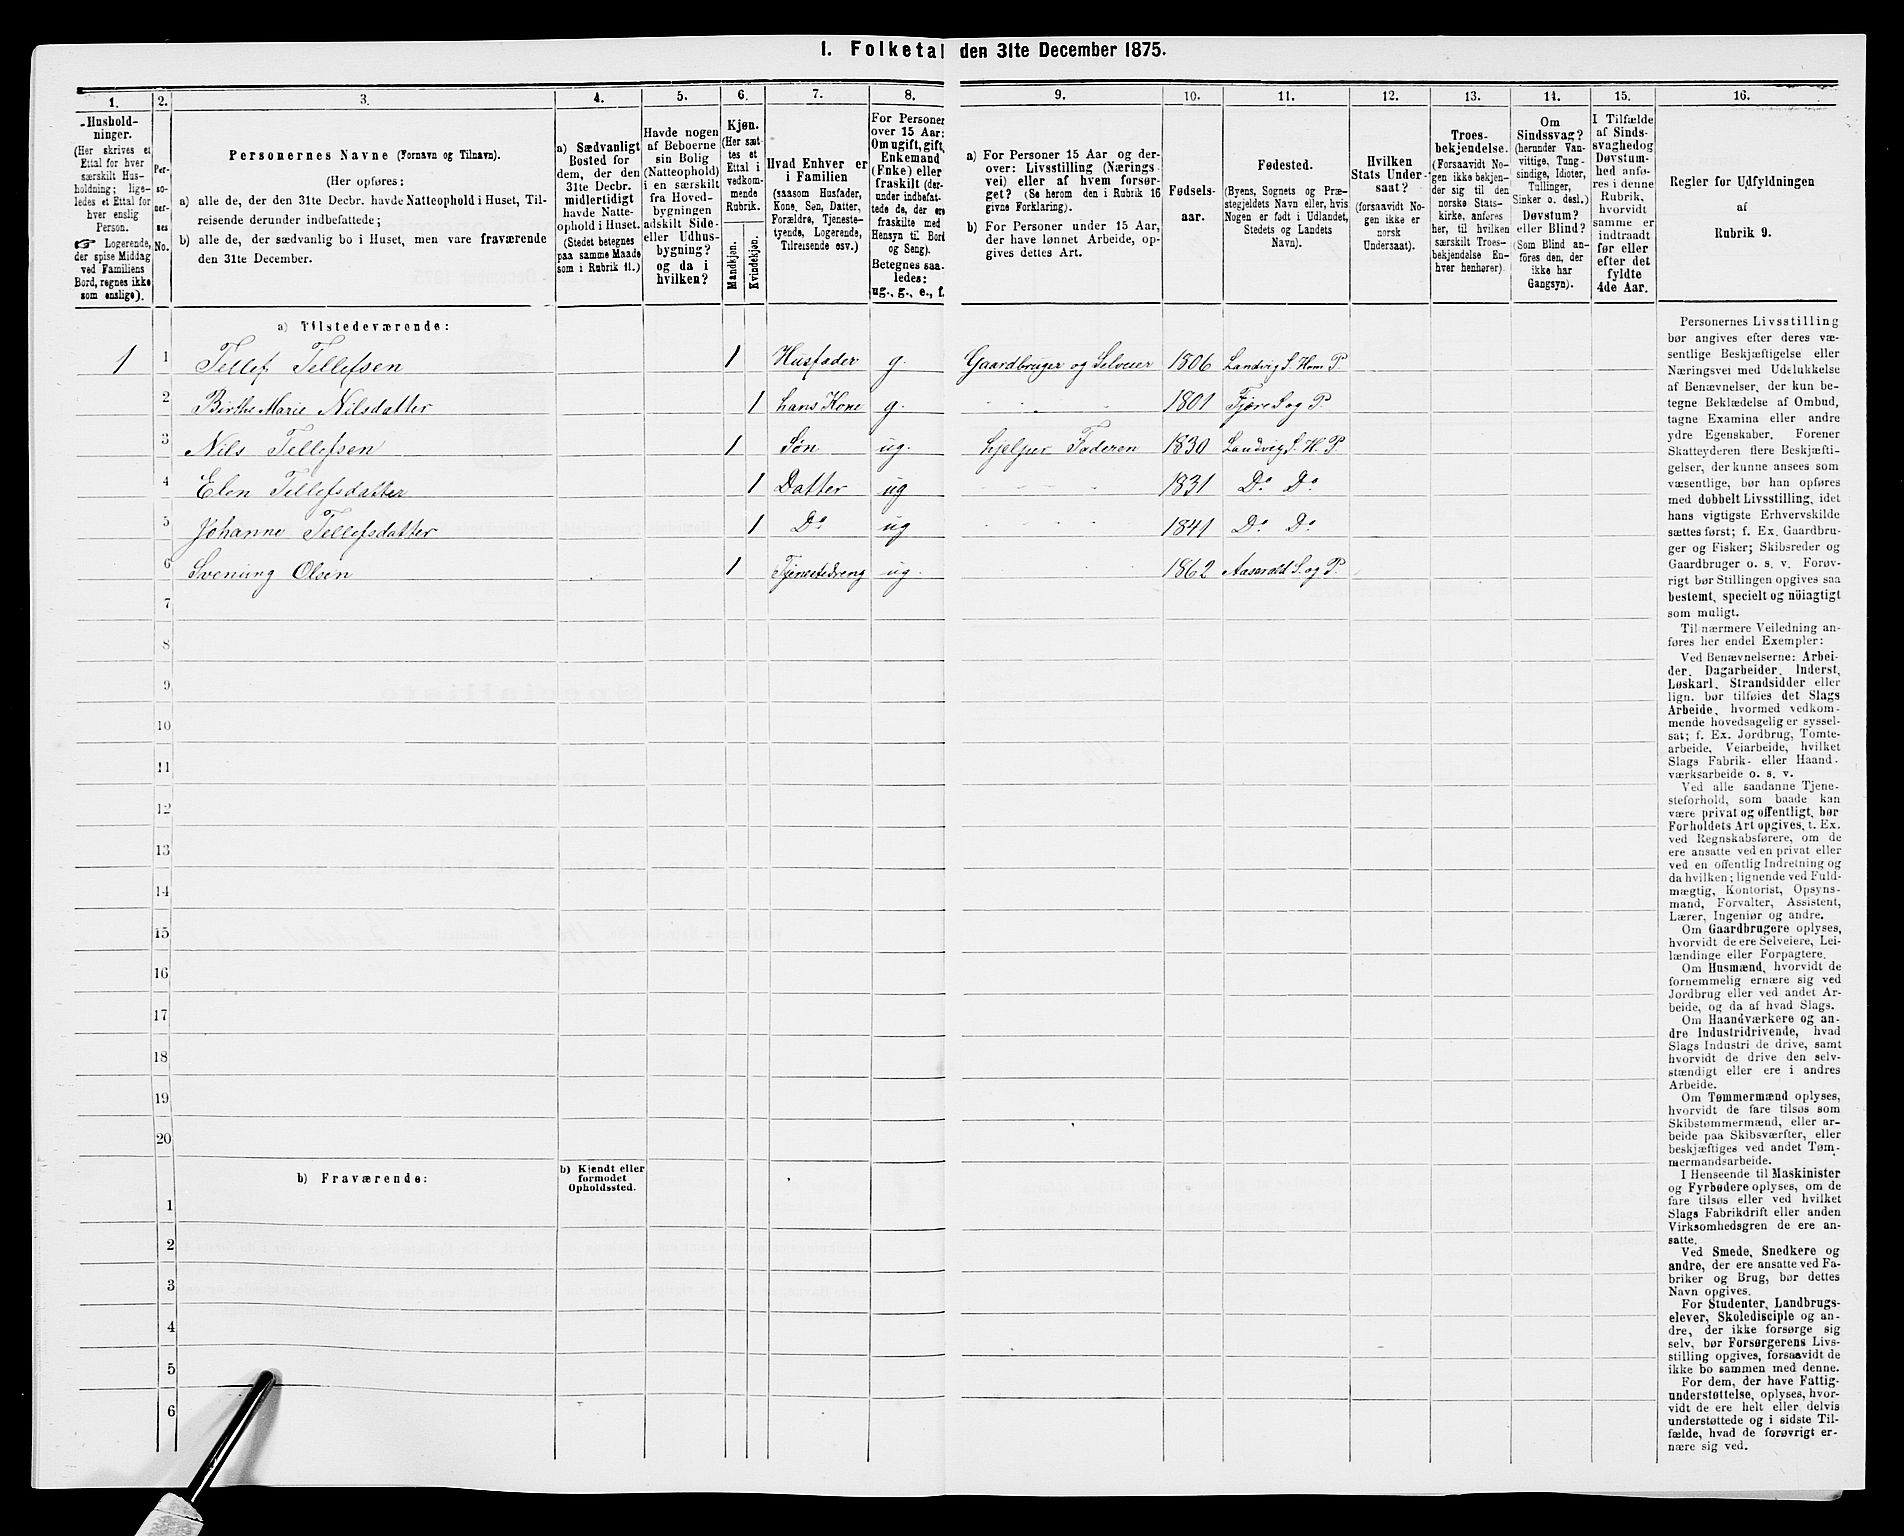 I. Folketal den 31te December 1875.
1. 2. 3. 4. 5. 6. 7. 8. 9. 10. 11. 12. 13. 14. 15. 16.
Hushold-
ninger.
(Her skrives et
Ettal for hver
særskilt Hus-
holdning; lige-
ledes et Ettal for
hver enslig
Person.
☞ Logerende,
der spise Middag
ved Familiens
Bord, regnes ikke
som enslige).
Per-
so-
ner-
nes
No.
Personernes Navne (Fornavn og Tilnavn).
(Her opføres:
a) alle de, der den 31te Decbr. havde Natteophold i Huset, Til-
reisende derunder indbefattede;
b) alle de, der sædvanlig bo i Huset, men vare fraværende
den 31te December.
a) Sædvanligt
Bosted for
dem, der den
31te Decbr.
midlertidigt
havde Natte-
ophold i Huset.
(Stedet betegnes
paa samme Maade
som i Rubrik 11.)
Havde nogen
af Beboerne
sin Bolig
(Natteophold)
i en særskilt
fra Hoved-
bygningen
adskilt Side-
eller Udhus-
bygning?
og da i
hvilken?
Kjøn.
(Her sæt-
tes et
Ettal i
vedkom-
mende
Rubrik.
Mandkjøn.
Kvindekjøn.
Hvad Enhver er
i Familien
(saasom Husfader,
Kone, Søn, Datter,
Forældre, Tjeneste-
tyende, Logerende,
Tilreisende osv.)
For Personer
over 15 Aar:
Om ugift, gift,
Enkemand
(Enke) eller
fraskilt (der-
under indbefat-
tede de, der ere
fraskilte med
Hensyn til Bord
og Seng).
Betegnes saa-
ledes:
ug., g., e., f.
a) For Personer 15 Aar og der-
over: Livsstilling (Nærings-
vei) eller af hvem forsør-
get? (Se herom den i Rubrik 16
givne Forklaring).
b) For Personer under 15 Aar,
der have lønnet Arbeide, op-
gives dettes Art.
Fødsels-
aar.
Fødested.
(Byens, Sognets og Præ-
stegjeldets Navn eller, hvis
Nogen er født i Udlandet,
Stedets og Landets
Navn).
Hvilken
Stats Under-
saat?
(forsaavidt No-
gen ikke er
norsk
Undersaat).
Troes-
bekjendelse.
(Forsaavidt No-
gen ikke bekjen-
der sig til den
norske Stats-
kirke, anføres
her, til hvilken
særskilt Troes-
bekjendelse En-
hver henhører).
Om
Sindssvag?
(herunder Van-
vittige, Tung-
sindige, Idioter,
Tullinger,
Sinker o. desl.)
Døvstum?
eller Blind?
(Som Blind an-
føres den, der
ikke har
Gangsyn).
I Tilfælde
af Sinds-
svaghed og
Døvstum-
hed anfø-
res i denne
Rubrik,
hvorvidt
samme er
indtraadt
før eller
efter det
fyldte
4de Aar.
Regler for Udfyldningen
af
Rubrik 9.
a) Tilstedeværende:
1 1 Tellef Tellefsen 1 Husfader g. Gaardbruger og Selveier 1806 Landvig S. Hom P.
2 Birthe Marie Nilsdatter 1 hans Kone g. " " " 1801 Fjære S og P.
3 Nils Tellefsen 1 Søn ug. hjelper Faderen 1830 Landvig S. H. P.
4 Elen Tellefsdatter 1 Datter ug " " " 1831 Do Do
5 Johanne Tellefsdatter 1 Do ug " " " 1841 Do Do
6 Svenung Olsen 1 Tjenestedreng ug. 1862 Aaserald S. og P.
7
8
9
10
11
12
13
14
15
16
17
18
19
20
b) Fraværende:
b) Kjendt eller
formodet
Opholdssted.
1
2
3
4
5
6
Personernes Livsstilling
bør angives efter deres væ-
sentlige Beskjæftigelse eller
Næringsvei med Udelukkelse
af Benævnelser, der kun be-
tegne Beklædelse af Ombud,
tagne Examina eller andre
ydre Egenskaber. Forener
Skatteyderen flere Beskjæfti-
gelser, der kunne ansees som
væsentlige, bør han opføres
med dobbelt Livsstilling, idet
hans vigtigste Erhvervskilde
sættes først; f. Ex. Gaardbru-
ger og Fisker; Skibsreder og
Gaardbruger o. s. v. Forøv-
rigt bør Stillingen opgives saa
bestemt, specielt og nöiagtigt
som muligt.
Til nærmere Veiledning an-
føres her endel Exempler:
Ved Benævnelserne: Arbei-
der, Dagarbeider, Inderst,
Løskarl, Strandsidder eller
lign. bør tilføies det Slags
Arbeide, hvormed vedkom-
mende hovedsagelig er syssel-
sat; f. Ex. Jordbrug, Tomte-
arbeide, Veiarbeide, hvilket
Slags Fabrik- eller Haand-
værksarbeide o. s. v.
Ved alle saadanne Tjene-
steforhold, som baade kan
være privat og offentligt, bør
Forholdets Art opgives, t. Ex.
ved Regnskabsførere, om de
ere ansatte ved en privat eller
ved en offentlig Indretning og
da hvilken; lignende ved Fuld-
mægtig, Kontorist, Opsyns-
mand, Forvalter, Assistent,
Lærer, Ingeniør og andre.
Om Gaardbrugere oplyses,
hvorvidt de ere Selveiere, Lei-
lændinge eller Forpagtere.
Om Husmænd, hvorvidt de
fornemmelig ernære sig ved
Jordbrug eller ved andet Ar-
beide, og da af hvad Slags.
Om Haandværkere og an-
dre Industridrivende, hvad
Slags Industri de drive, samt
hvorvidt de drive den selv-
stændigt eller ere i andres
Arbeide.
Om Tømmermænd oplyses,
hvorvidt de fare tilsøs som
Skibstømmermænd, eller ar-
beide paa Skibsværfter, eller
beskjæftiges ved andet Tøm-
mermandsarbeide.
I Henseende til Maskinister
og Fyrbødere oplyses, om de
fare tilsøs eller ved hvilket
Slags Fabrikdrift eller anden
Virksomhedsgren de ere an-
satte.
Ved Smede, Snedkere og
andre, der ere ansatte ved Fa-
briker og Brug, bør dettes
Navn opgives.
For Studenter, Landbrugs-
elever, Skoledisciple og an-
dre, der ikke forsørge sig
selv, bør Forsørgerens Livs-
stilling opgives, forsaavidt de
ikke bo sammen med denne.
For dem, der have Fattig-
understøttelse, oplyses, hvor-
vidt de ere helt eller delvis
understøttede og i sidste Til-
fælde, hvad de forøvrigt er-
nære sig ved.